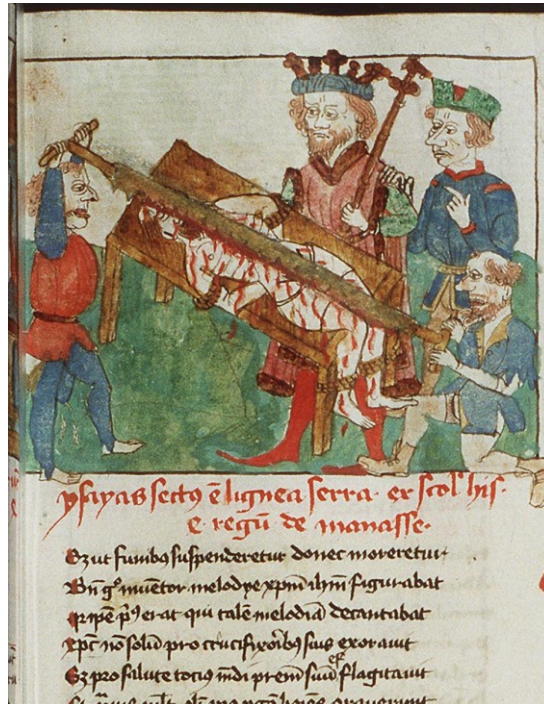 ysayas sectus e lignea serra. ex scol' his.
e. regū de manasse.
Sz ut funibus suspenderetur donec moreretur
Un g° inuentor melodye xpm ihm figurabat
ipe p' erat qui talē melodiā decantabat
xpc nō solū pro crucifixoribus suis exorauit
Sz pro salute tocius mdi prem suū flagitauit